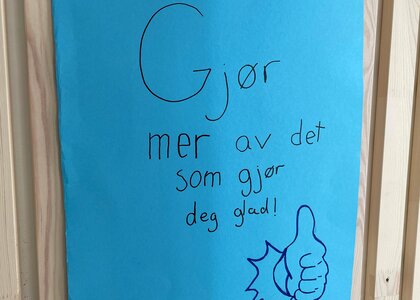 Gjør
mer av det
som gjør
deg glad!